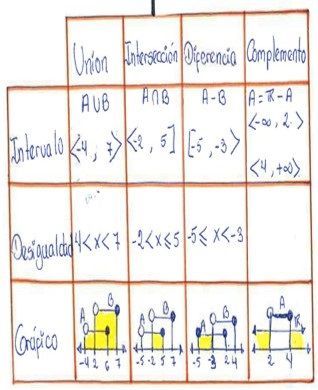 Unión Intersección Diferencia Complemento
Intervalo
A∪B A∩B A-B A=ℝ-A
<-4, 7> <-2, 5] [-5, -3> <-∞, 2.>
<4, +∞>
Desigualdad
4<x<7 -2<x≤5 -5≤x<-3
Gráfico
A B A B A B A ℝ
-4 2 6 7 -5 -2 5 7 -5 -3 2 4 2 4